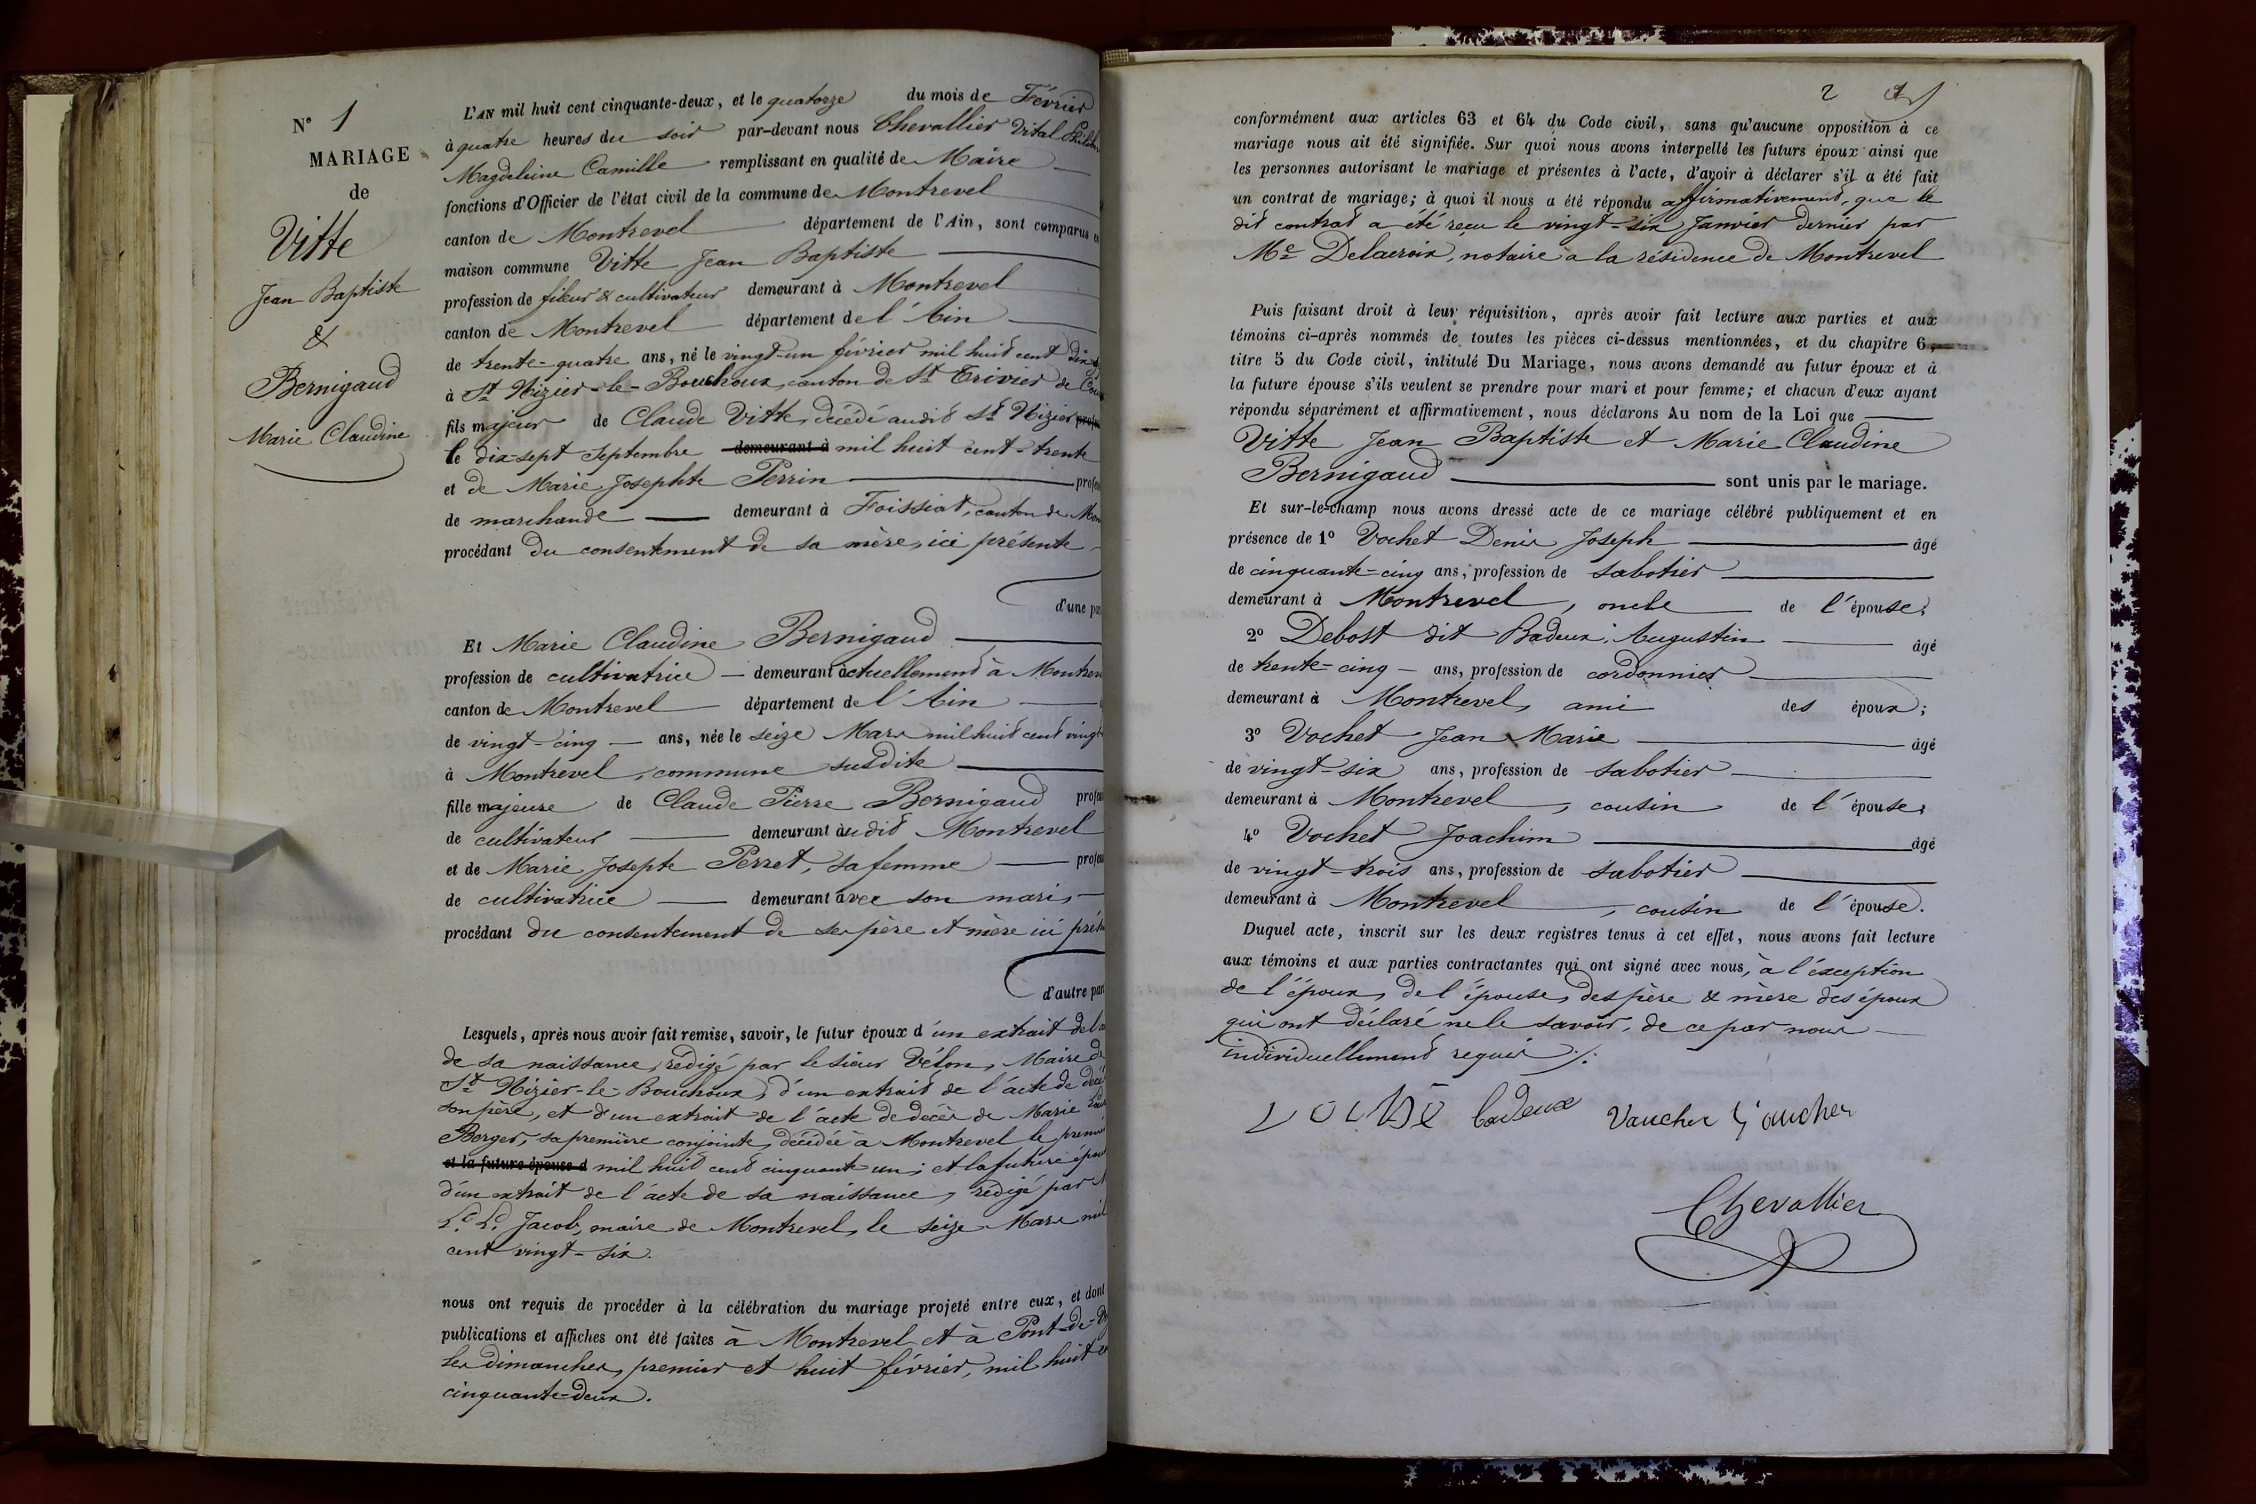 N° 1
MARIAGE
de
Vitte
Jean Baptiste
&
Bernigaud
Marie Claudine
L'AN mil huit cent cinquante-deux, et le quatorze du mois de Février
à quatre heures du soir par-devant nous Chevallier Vital
Magdeleine Camille remplissant en qualité de Maire
fonctions d'Officier de l'état civil de la commune de Montrevel
canton de Montrevel département de l'Ain, sont comparus
maison commune Vitte Jean Baptiste
profession de fileur & cultivateur demeurant à Montrevel
canton de Montrevel département de l'Ain
de trente-quatre ans, né le vingt-un février mil huit cent dix
à St Nizier-le-Bouchoux, canton de St Trivier de
fils majeur de Claude Vitte, décédé audit St Nizier
le dix-sept septembre demeurant à mil huit cent-trente
et de Marie Josephte Perrin
de marchande demeurant à Foissiat, canton de
procédant du consentement de sa mère, ici présente
d'une
Et Marie Claudine Bernigaud
profession de cultivatrice demeurant actuellement à
canton de Montrevel département de l'Ain
de vingt-cinq ans, née le seize Mars mil huit cent vingt
à Montrevel, commune susdite
fille majeure de Claude Pierre Bernigaud
de cultivateur demeurant audit Montrevel
et de Marie Josepte Perret, sa femme
de cultivatrice demeurant avec son mari,
procédant du consentement de ses père et mère ici
d'autre
Lesquels, après nous avoir fait remise, savoir, le futur époux d'un extrait de
de sa naissance, rédigé par le sieur Vélon, Maire de
St Nizier-le-Bouchoux, d'un extrait de l'acte de
son père, et d'un extrait de l'acte de décès de Marie
Berger, sa première conjointe, décédée à Montrevel le
et la future épouse d mil huit cent cinquante-un; et la future
d'un extrait de l'acte de sa naissance, rédigé par
Jacob, maire de Montrevel, le seize Mars mil
cent vingt-six.
nous ont requis de procéder à la célébration du mariage projeté entre eux, et dont
publications et affiches ont été faites à Montrevel et à Pont-de-
les dimanches, premier et huit février, mil huit
cinquante-deux.
2
conformément aux articles 63 et 64 du Code civil, sans qu'aucune opposition à ce
mariage nous ait été signifiée. Sur quoi nous avons interpellé les futurs époux ainsi que
les personnes autorisant le mariage et présentes à l'acte, d'avoir à déclarer s'il a été fait
un contrat de mariage; à quoi il nous a été répondu affirmativement, que le
dit contrat a été reçu le vingt-six Janvier dernier par
Me Delacroix, notaire à la résidence de Montrevel
Puis faisant droit à leur réquisition, après avoir fait lecture aux parties et aux
témoins ci-après nommés de toutes les pièces ci-dessus mentionnées, et du chapitre 6,
titre 5 du Code civil, intitulé Du Mariage, nous avons demandé au futur époux et à
la future épouse s'ils veulent se prendre pour mari et pour femme; et chacun d'eux ayant
répondu séparément et affirmativement, nous déclarons Au nom de la Loi que
Vitte Jean Baptiste et Marie Claudine
Bernigaud sont unis par le mariage.
Et sur-le-champ nous avons dressé acte de ce mariage célébré publiquement et en
présence de 1° Vochet Denis Joseph âgé
de cinquante-cinq ans, profession de sabotier
demeurant à Montrevel, oncle de l'épouse;
2° Debost dit Badeux, Augustin âgé
de trente-cinq ans, profession de cordonnier
demeurant à Montrevel, ami des époux;
3° Vochet Jean Marie âgé
de vingt-six ans, profession de sabotier
demeurant à Montrevel, cousin de l'épouse,
4° Vochet Joachim âgé
de vingt-trois ans, profession de sabotier
demeurant à Montrevel, cousin de l'épouse.
Duquel acte, inscrit sur les deux registres tenus à cet effet, nous avons fait lecture
aux témoins et aux parties contractantes qui ont signé avec nous, à l'exception
de l'époux, de l'épouse, des père & mère des époux
qui ont déclaré ne le savoir, de ce par nous
individuellement requis ./.
badeux Vaucher
Chevallier